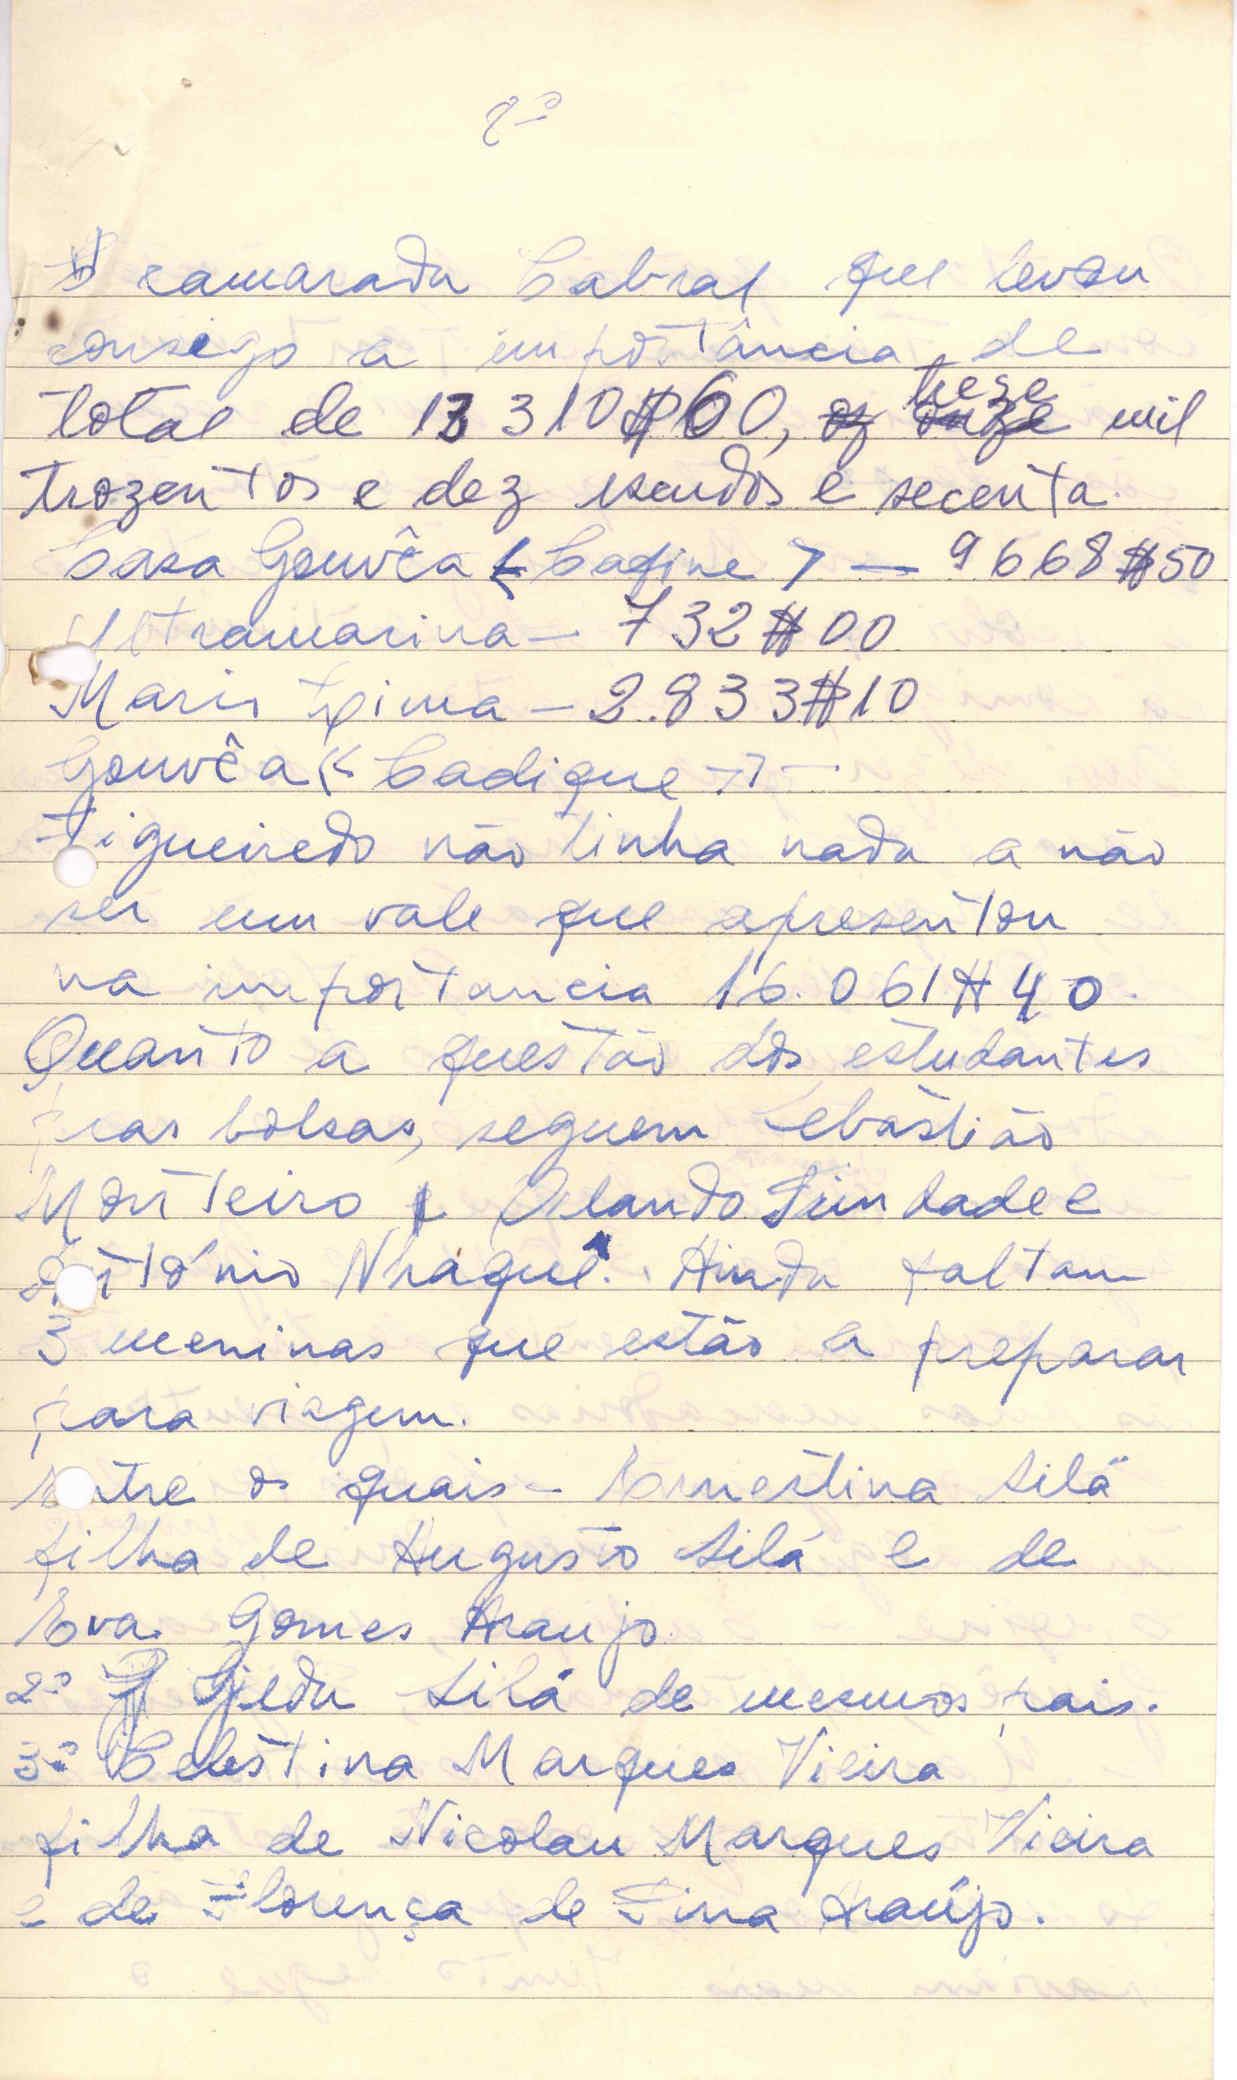 2º
camarada Cabral que levou
consigo a importância de
total de 13310$60, treze mil
trozentos e dez escudos e secenta.
Casa Gouvêa « Cacine » — 9668$50
Ultramarina — 732$00
Maris — 2.833$10
Gouvêa « Cadique » —
Figueiredo não tinha nada a não
ser um vale que apresentou
na importancia 16.061$40.
Quanto a questão dos estudantes
pras bolsas, seguem Sebastião
Monteiro Orlando Trindade e
António Nhaqué. Ainda faltam
3 meninas que estão a preparar
para viagem.
Entre os quais — Ernestina Silá
filha de Augusto Silá e de
Eva Gomes Araujo
2º Sjedu Silá de mesmos pais.
3º Celestina Marques Vieira
filha de Nicolau Marques Vieira
e de Florença de Pina Araújo.